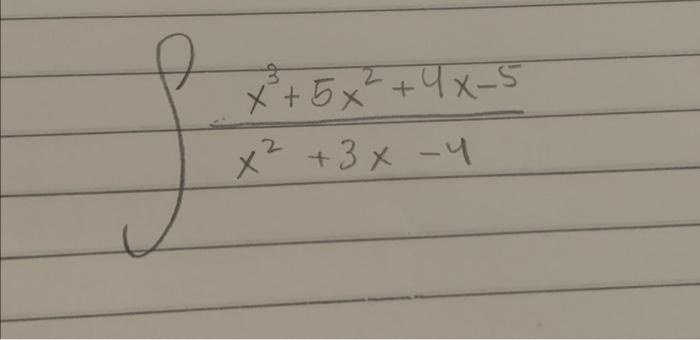 ∫ x³ + 5x² + 4x - 5
x² + 3x - 4